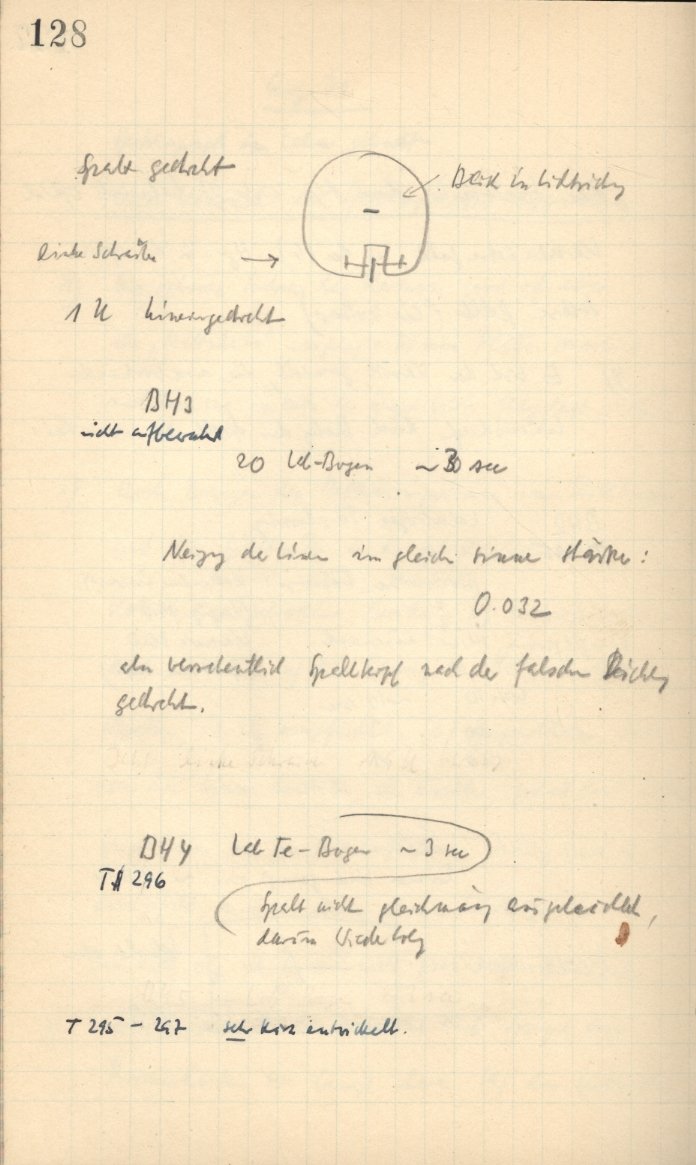 128
Spalt gedreht
Blick in Lichtrichtg
linke Schraube
1 U hineingedreht
BH3
nicht aufbewahrt
20 Bogen ~30 sec
Neigg der Linien im gleich sinne stärker:
0.032
also versehentlich Spaltkopf nach der falschen Richtg
gedreht.
BH4 Fe-Bogen ~3 sec
T 296
Spalt nicht gleichmässig ausgeleuchtet,
darum Wiederholg
T 295 - 297 sehr kurz entwickelt.